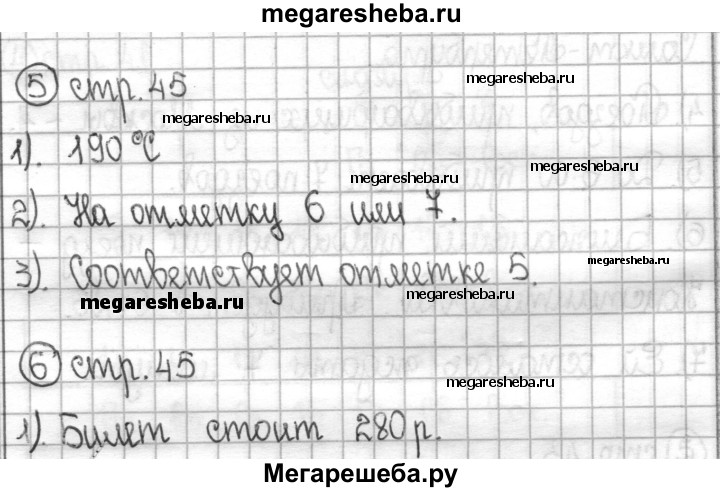 megaresheba.ru
5 стр. 45
megaresheba.ru
megaresheba.ru
1). 190°С
megaresheba.ru
megaresheba.ru
2). На отметку 6 или 7.
megaresheba.ru
3). Соответствует отметке 5.
megaresheba.ru
megaresheba.ru
6 стр. 45
megaresheba.ru
1). Билет стоит 280 р.
Мегарешеба.ру